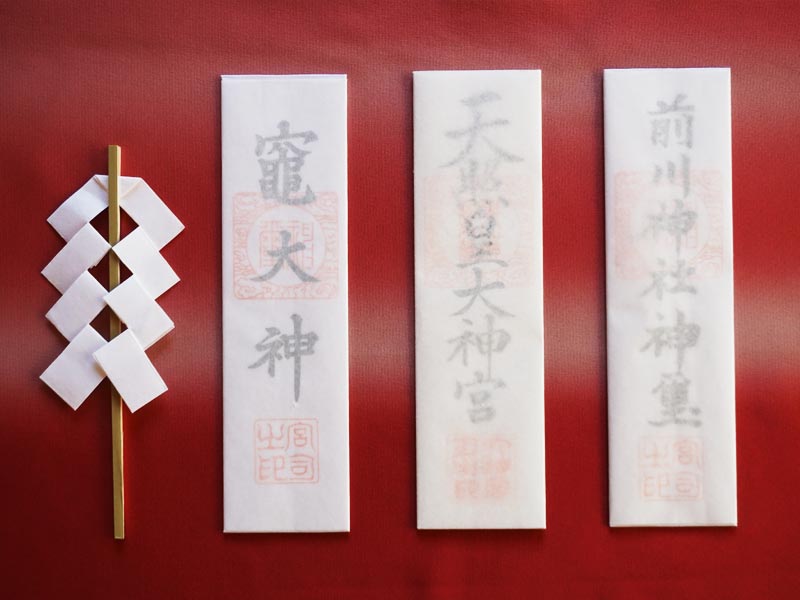 前川神社神璽
宮司之印
天照皇大神宮
竈大神
宮司之印